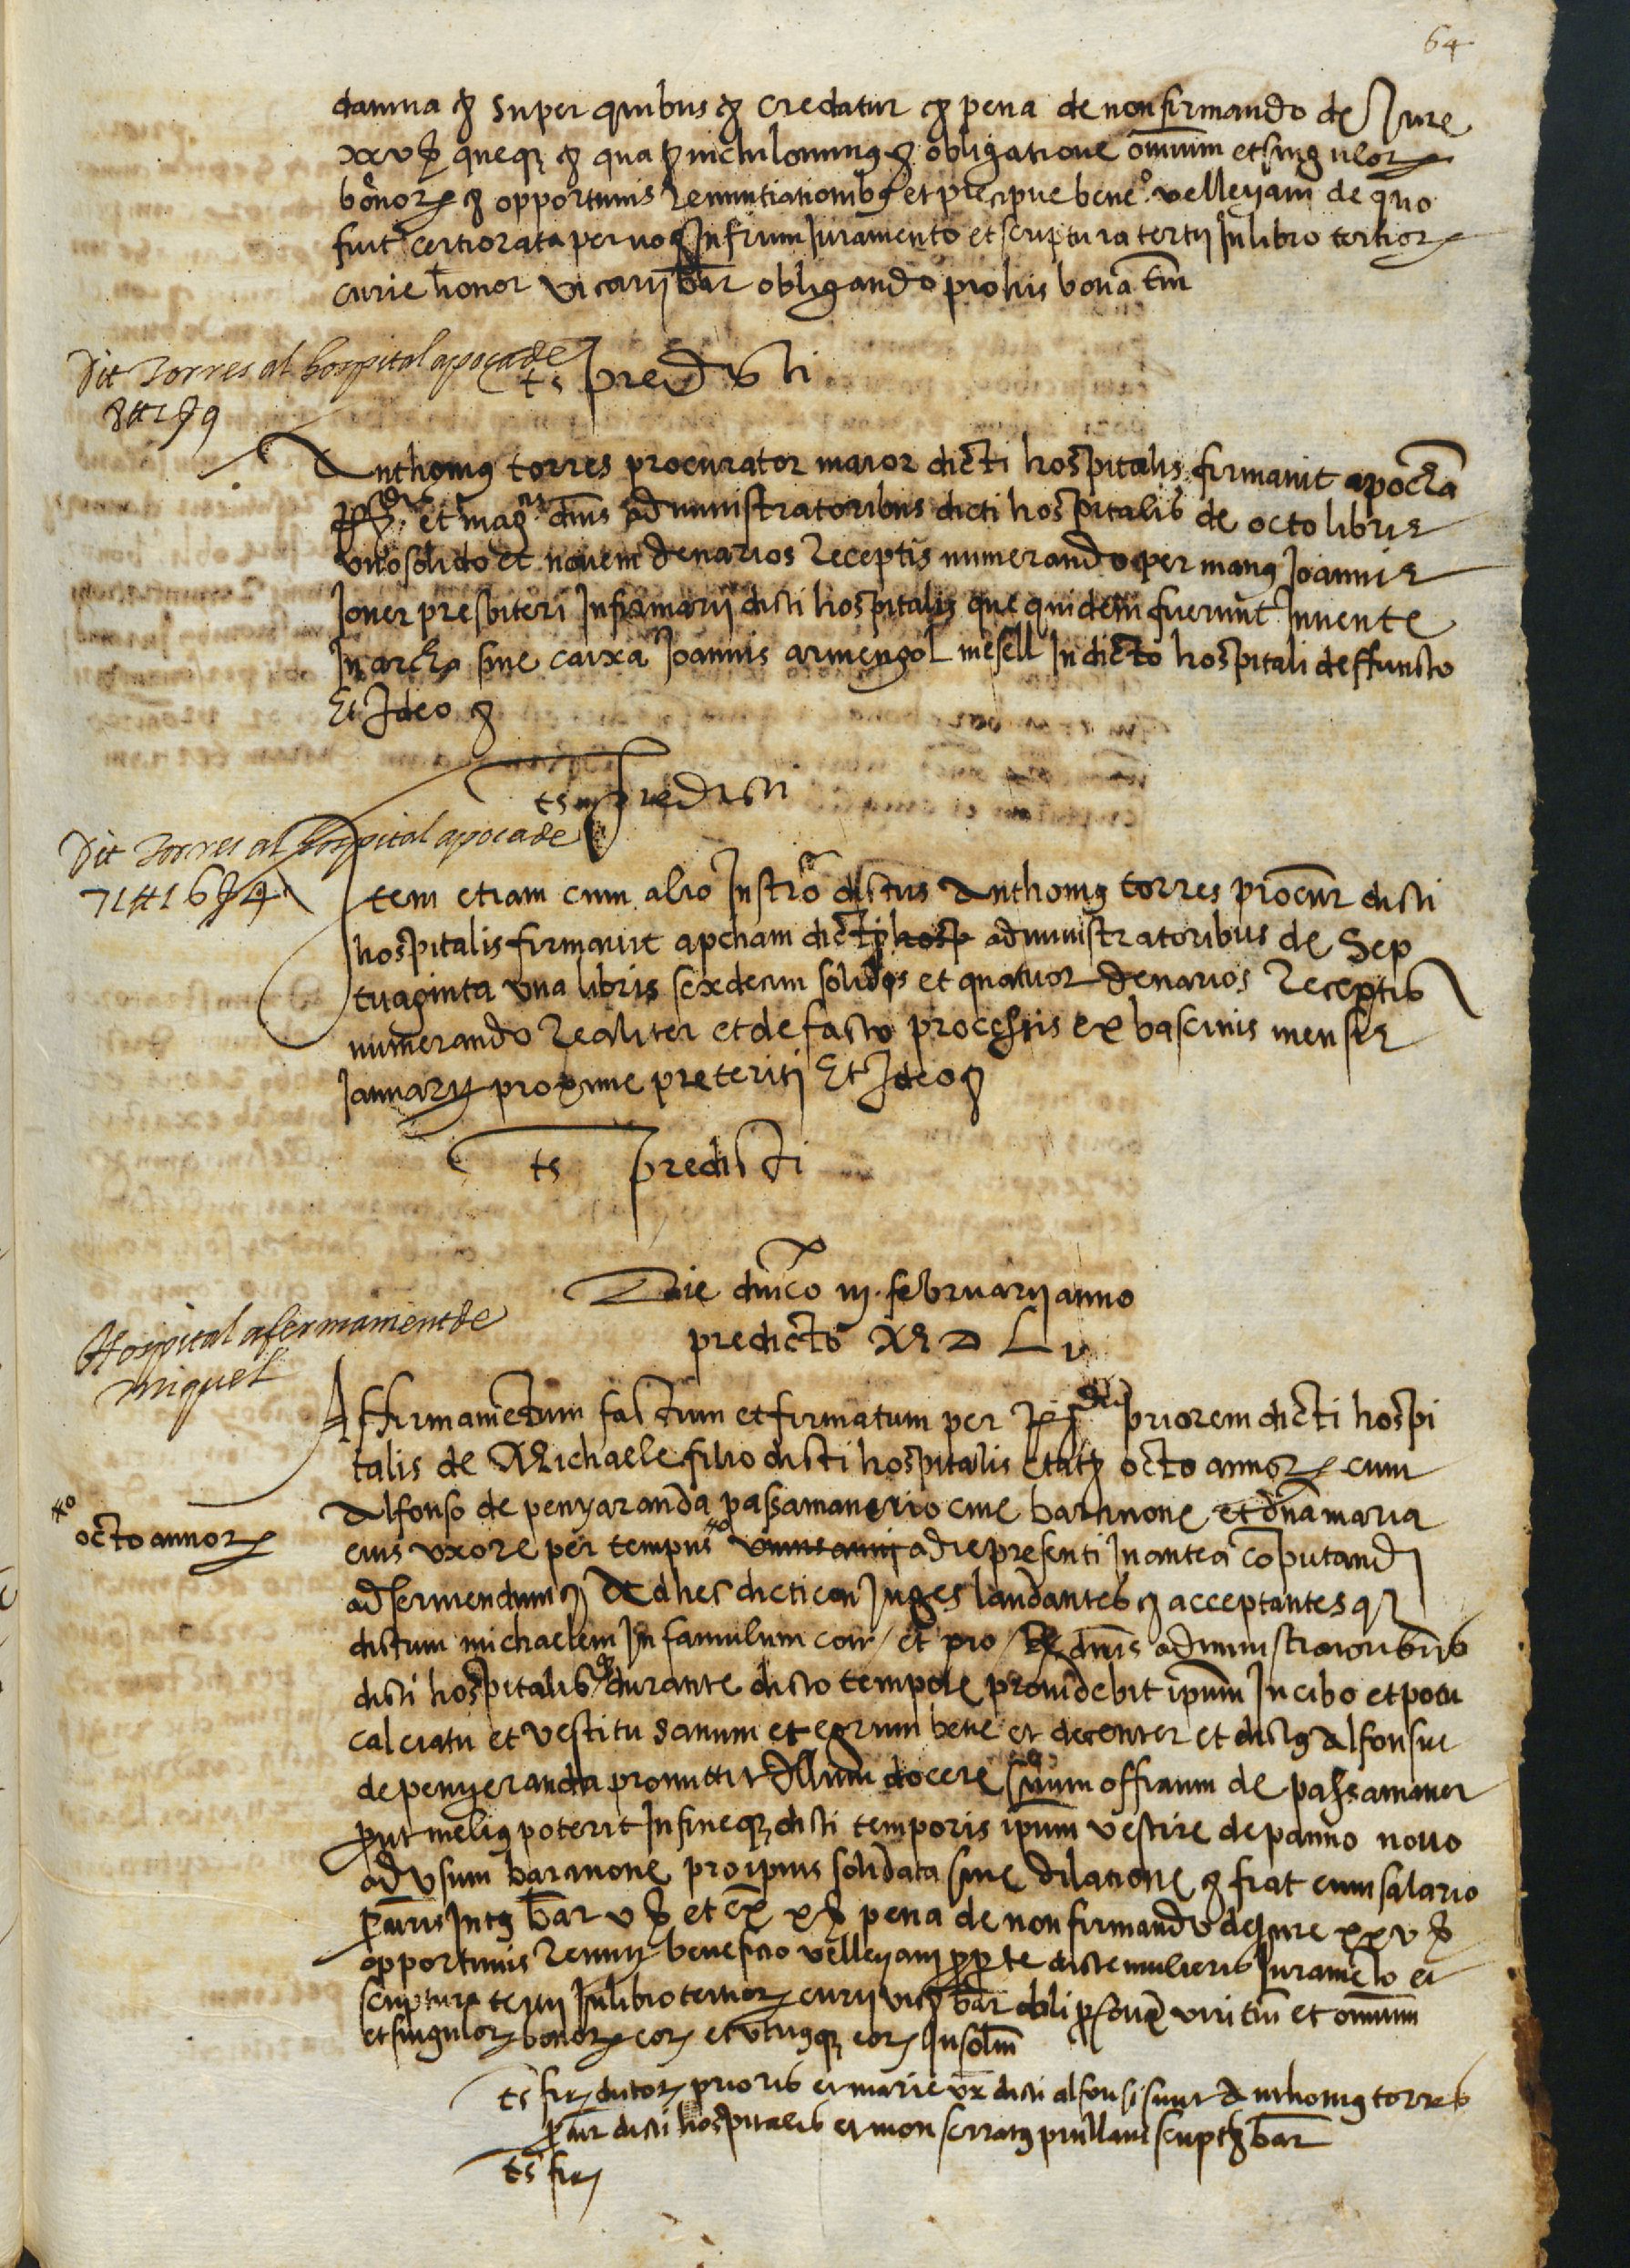 64
damna & super quibus & credatur & pena de non firmando de Jure
xxv s queq & qua nichilominus & obligatione omnium et singulor
bonor & opportunis Renuntiationibus et precipue bene° velleyani de quo
fuit certiorata per no Juramento et scriptura tertii In libro tertior
curie honor vicarii bar obligando pro his bona tm
Dit Torres al hospital apoca de
8 tt 1 s 9
ts predicti
Anthonius torres procurator maior dicti hospitalis firmavit apocha
et mag dnis administratoribus dicti hospitalis de octo libris
uno solido et novem denarios Receptis numerando per manus Joannis
Joner presbiteri Infirmarii dicti hospitalis que quidem fuerunt Invente
In archa sive caixa Joannis armengol mesell In dicto hospitali deffuncto
Et Ideo &
ts predicti
Dit Torres al hospital apoca de
71 tt 16 s 4
Item etiam cum alio Instro dictus Anthonius torres procur dicti
hospitalis firmavit apcham dicti hosp administratoribus de Sep
tuaginta una libris sexdecim solidos et quatuor denarios Receptis
numerando Realiter et de facto processis ex bascinis mensis
Januarii proxime preteriti Et Ideo &
ts predicti
Die dnico iij februarii anno
predicto M D L v
Hospital afermament de
miquel
Affirmamentum factum et firmatum per priorem dicti hospi
talis de Michaele filio dicti hospitalis etatis octo annor cum
Alfonso de penyaranda passamanerio cive barcinone et dna maria
octo annor
eius uxore per tempus unius anni a die presenti In antea coputand
ad serviendum & Ad hec dicti conjuges laudantes & acceptantesq
dictum michaelem In famulum et pro dnis administratoribus
dicti hospitalis durante dicto tempore providebit ipsum In cibo et potu
calciatu et vestitu sanum et egrum bene et decenter et dictus Alfonsus
de penyeranda promittit Illum docere suum officium de passamaner
prout melius poterit In fineq dicti temporis ipsum vestire de panno novo
ad usum barcinone pro ipsius solidata sine dilatione & fiat cum salario
pcuris Intus bar v s et ex x s pena de non firmando de jure xxv s
opportunis Renun beneficio velleyani pro parte dicte mulieris Juramento et
scriptura tertii In libro tertior curii vicarii bar obli viri tm et omnium
et singulor bonor eor et utriusq eor In solm
ts fir dictor prioris et marie ux dicti alfonsi sunt Anthonius torres
pcur dicti hospitalis et monserratus prullani script bar
ts fir